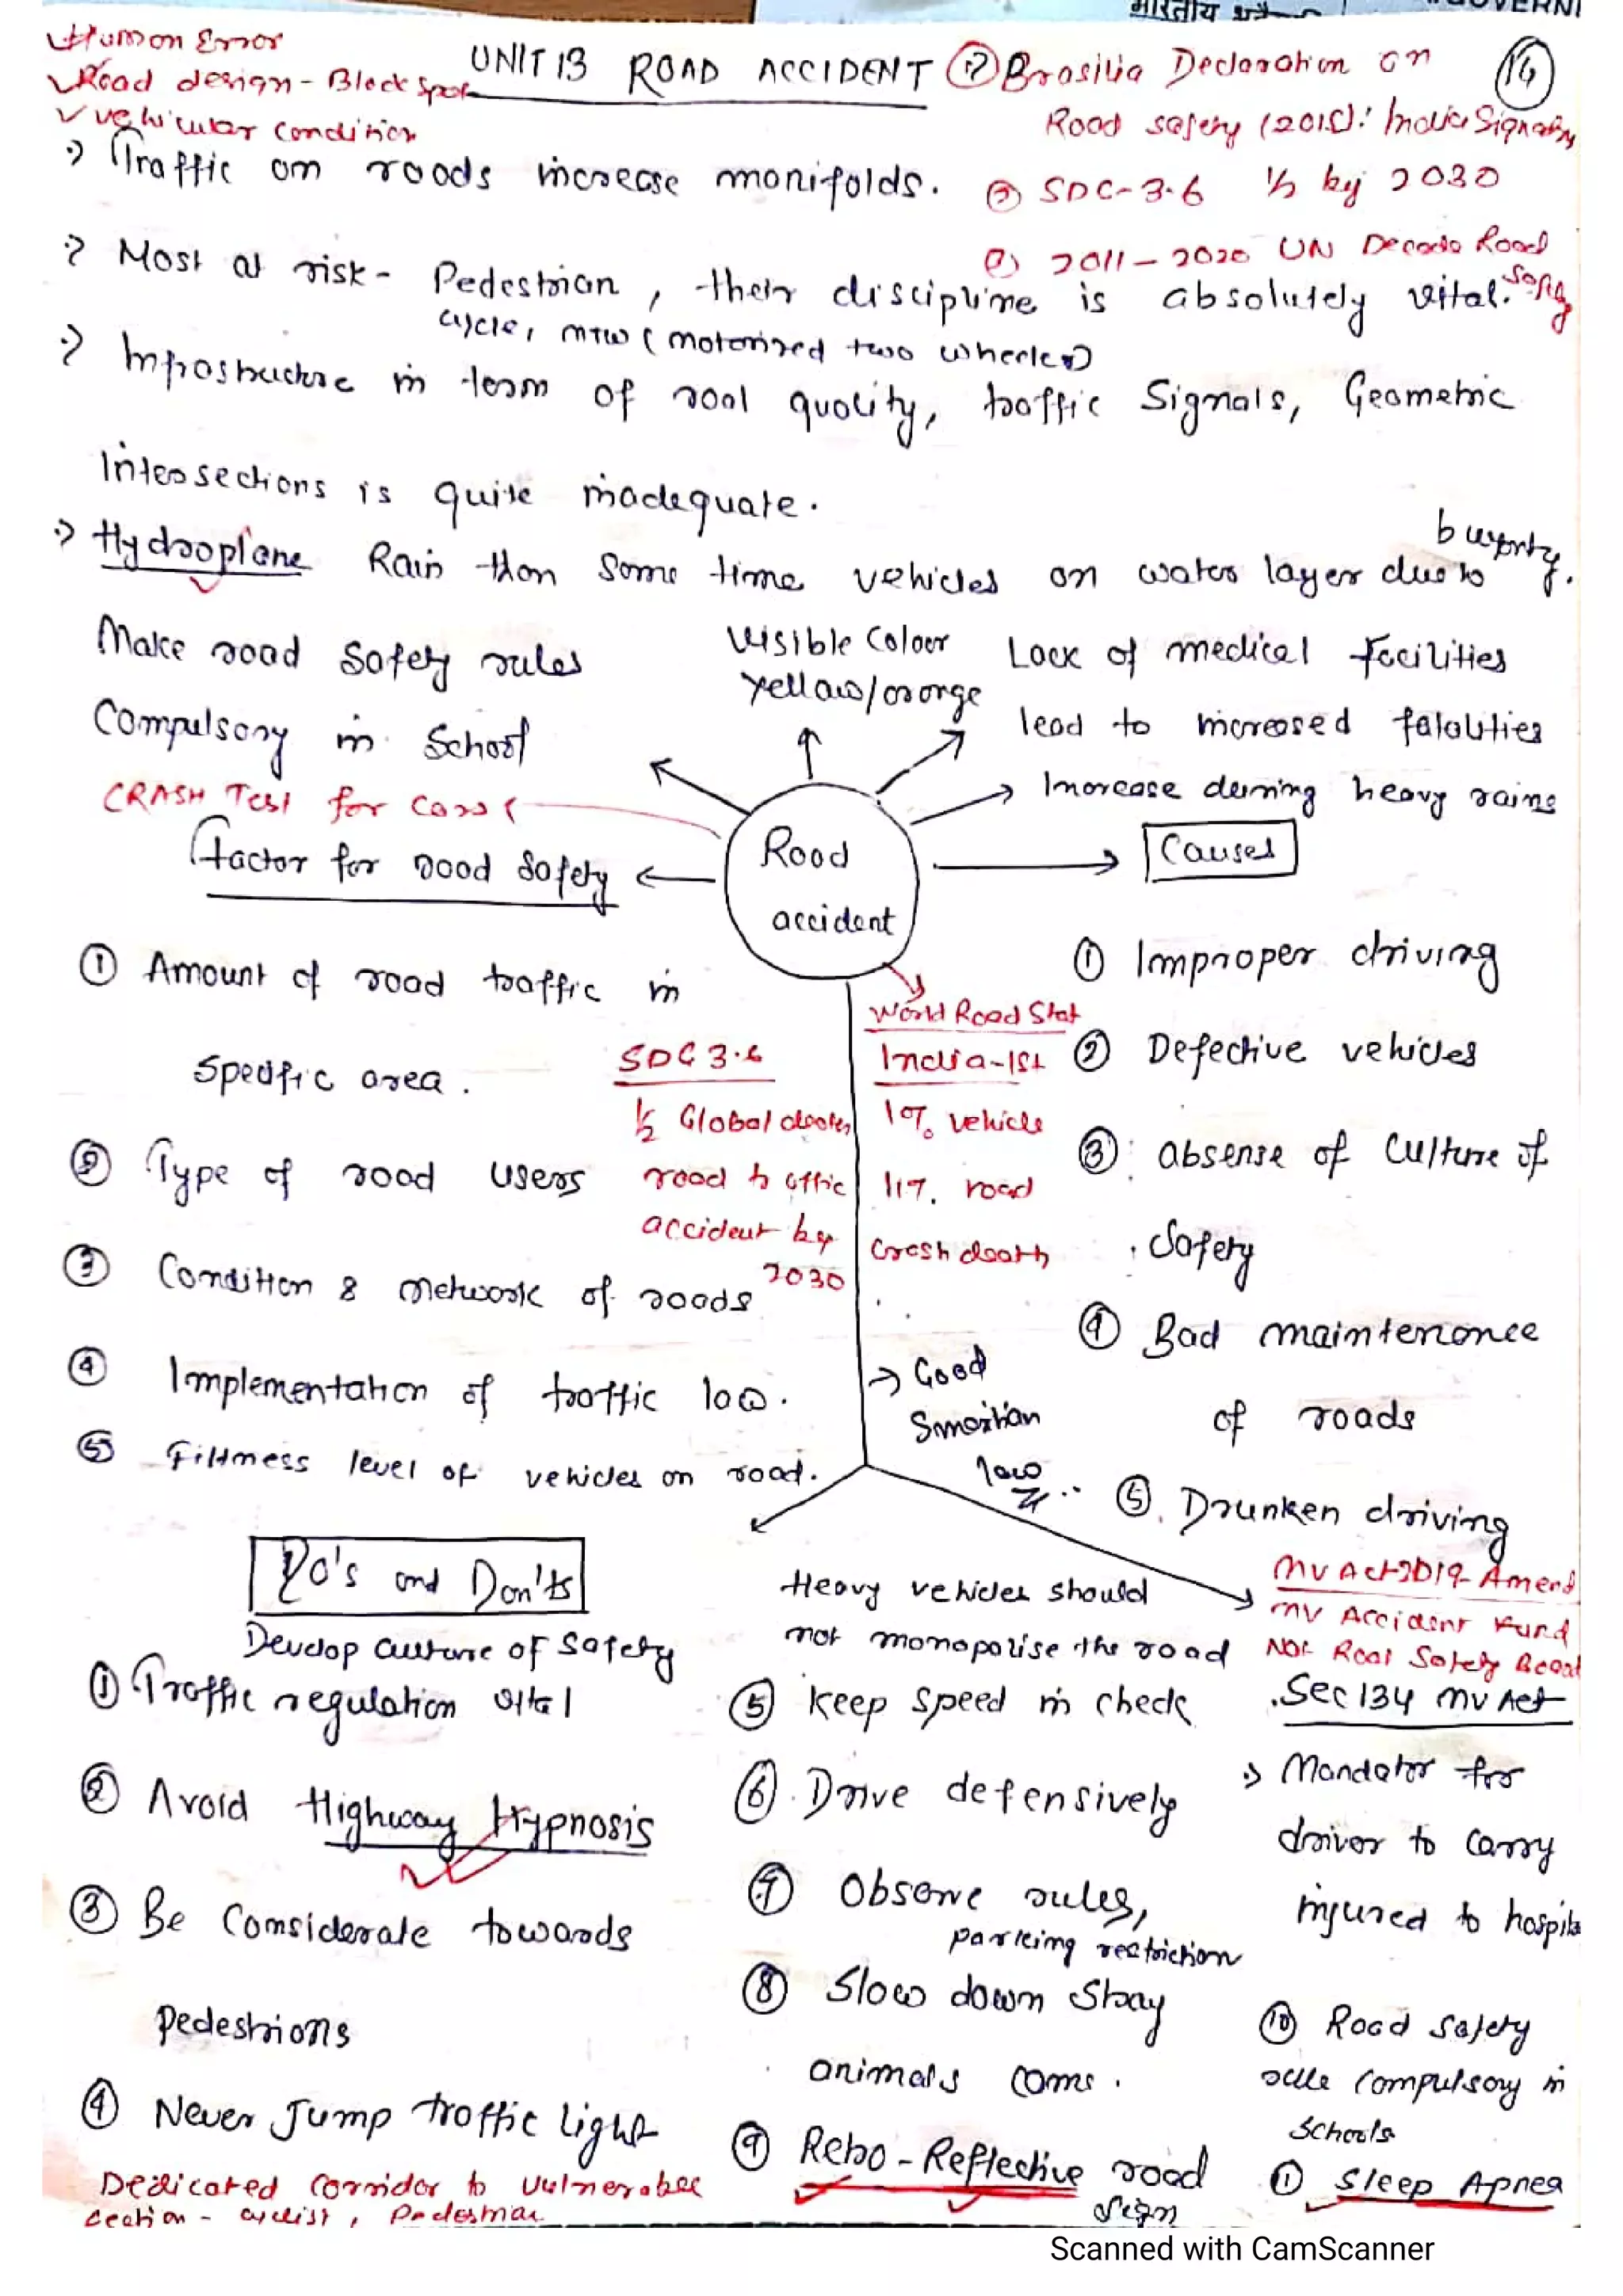 भारतीय
GOVERNI
Human Error
UNIT 13 ROAD ACCIDENT
Brasilia Declaration on
14
Road design - Black Spot
Road safety (2015): India Signatory
Vehicular condition
Traffic on roads increase manifolds.
SDG-3.6 ½ by 2030
2011-2020 UN Decade Road Safety
Most at risk - Pedestrian, their discipline is absolutely vital.
cycle, MTW (motorized two wheeler)
Infrastructure in term of road quality, traffic Signals, Geometric
Intersections is quite inadequate.
Hydroplane Rain than some time vehicles on water layer due to
Make road safety rules
Compulsory in School
Visible Colour
Yellow/orange
Lack of medical facilities
lead to increased fatalities
Increase during heavy rains
CRASH Test for Cars
Factor for road safety
Road
accident
Causes
① Amount of road traffic in
specific area.
② Type of road users
③ Condition & network of roads
④ Implementation of traffic law.
⑤ Fittness level of vehicles on road.
SDG 3.6
½ Global deaths
road traffic
accident by
2030
World Road Stat
India-1st
1% vehicle
11% road
Crash death
→ Good
Smaritian
law
① Improper driving
② Defective vehicles
③ absense of culture of
Safety
④ Bad maintenance
of roads
⑤ Drunken driving
Do's and Don'ts
Develop culture of safety
① Traffic regulation vital
② Avoid Highway Hypnosis
③ Be Considerate towards
Pedestrians
④ Never Jump traffic light
Dedicated Corridor to vulnerable
section - cyclist, Pedestrian
Heavy vehicles should
not monopolise the road
⑤ Keep speed in check
⑥ Drive defensively
⑦ Observe rules,
parking restriction
⑧ Slow down Stray
animals come.
⑨ Retro-Reflective road
sign
MV Act 2019 Amend
MV Accident Fund
Nat Road Safety Board
Sec 134 MV Act
Mandator for
driver to carry
injured to hospital
⑩ Road safety
rule compulsory in
schools
Sleep Apnea
Scanned with CamScanner